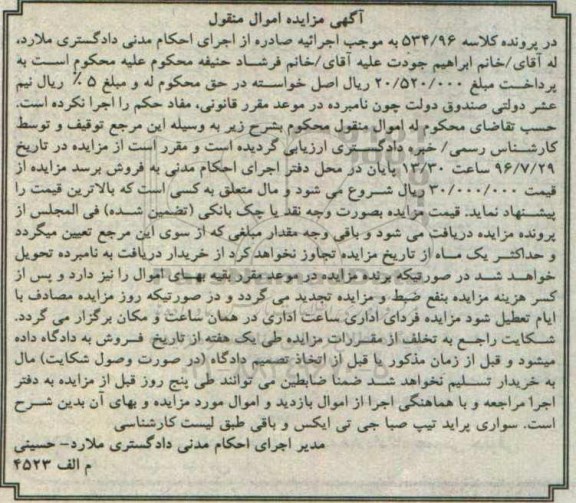 آگهی مزایده اموال منقول
در پرونده کلاسه ۵۳۴/۹۶ به موجب اجرائیه صادره از اجرای احکام مدنی دادگستری ملارد،
له آقای/خانم ابراهیم جودت علیه آقای/خانم فرشاد حنیفه محکوم علیه محکوم است به
پرداخت مبلغ ۲۰/۵۲۰/۰۰۰ ریال اصل خواسته در حق محکوم له و مبلغ ۵٪ ریال نیم
عشر دولتی صندوق دولت چون نامبرده در موعد مقرر قانونی، مفاد حکم را اجرا نکرده است.
حسب تقاضای محکوم له اموال منقول محکوم بشرح زیر به وسیله این مرجع توقیف و توسط
کارشناس رسمی/ خبره دادگستری ارزیابی گردیده است و مقرر است از مزایده در تاریخ
۹۶/۷/۲۹ ساعت ۱۲/۳۰ پایان در محل دفتر اجرای احکام مدنی به فروش برسد مزایده از
قیمت ۳۰/۰۰۰/۰۰۰ ریال شروع می شود و مال متعلق به کسی است که بالاترین قیمت را
پیشنهاد نماید. قیمت مزایده بصورت وجه نقد یا چک بانکی (تضمین شده) فی المجلس از
برنده مزایده دریافت می شود و باقی وجه مقدار مبلغی که از سوی این مرجع تعیین میگردد
و حداکثر یک ماه از تاریخ مزایده تجاوز نخواهد کرد از خریدار دریافت به نامبرده تحویل
خواهد شد در صورتیکه برنده مزایده در موعد مقرر بقیه بهای اموال را نیز دارد و پس از
کسر هزینه مزایده بنفع ضبط و مزایده تجدید می گردد و در صورتیکه روز مزایده مصادف با
ایام تعطیل شود مزایده فردای اداری ساعت اداری در همان ساعت و مکان برگزار می گردد.
شکایت راجع به تخلف از مقررات مزایده طی یک هفته از تاریخ فروش به دادگاه داده
میشود و قبل از زمان مذکور یا قبل از اتخاذ تصمیم دادگاه (در صورت وصول شکایت) مال
به خریدار تسلیم نخواهد شد ضمنا ضابطین می توانند طی پنج روز قبل از مزایده به دفتر
اجرا مراجعه و با هماهنگی اجرا از اموال بازدید و اموال مورد مزایده و بهای آن بدین شرح
است. سواری پراید تیپ صبا جی تی ایکس و باقی طبق لیست کارشناسی
مدیر اجرای احکام مدنی دادگستری ملارد- حسینی
م الف ۴۵۲۳